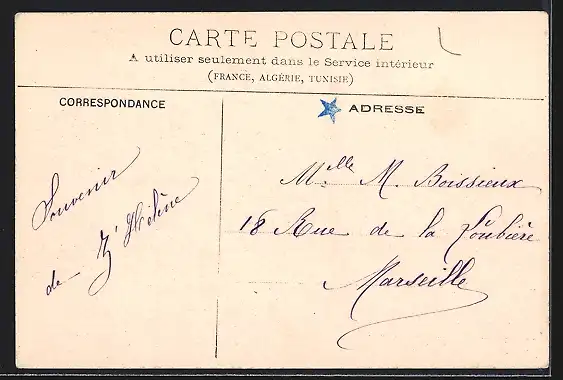 CARTE POSTALE
A utiliser seulement dans le Service intérieur
(FRANCE, ALGÉRIE, TUNISIE)
CORRESPONDANCE
ADRESSE
Souvenir
de Hélène
Mlle M. Boissieux
18 Rue de la Loubière
Marseille